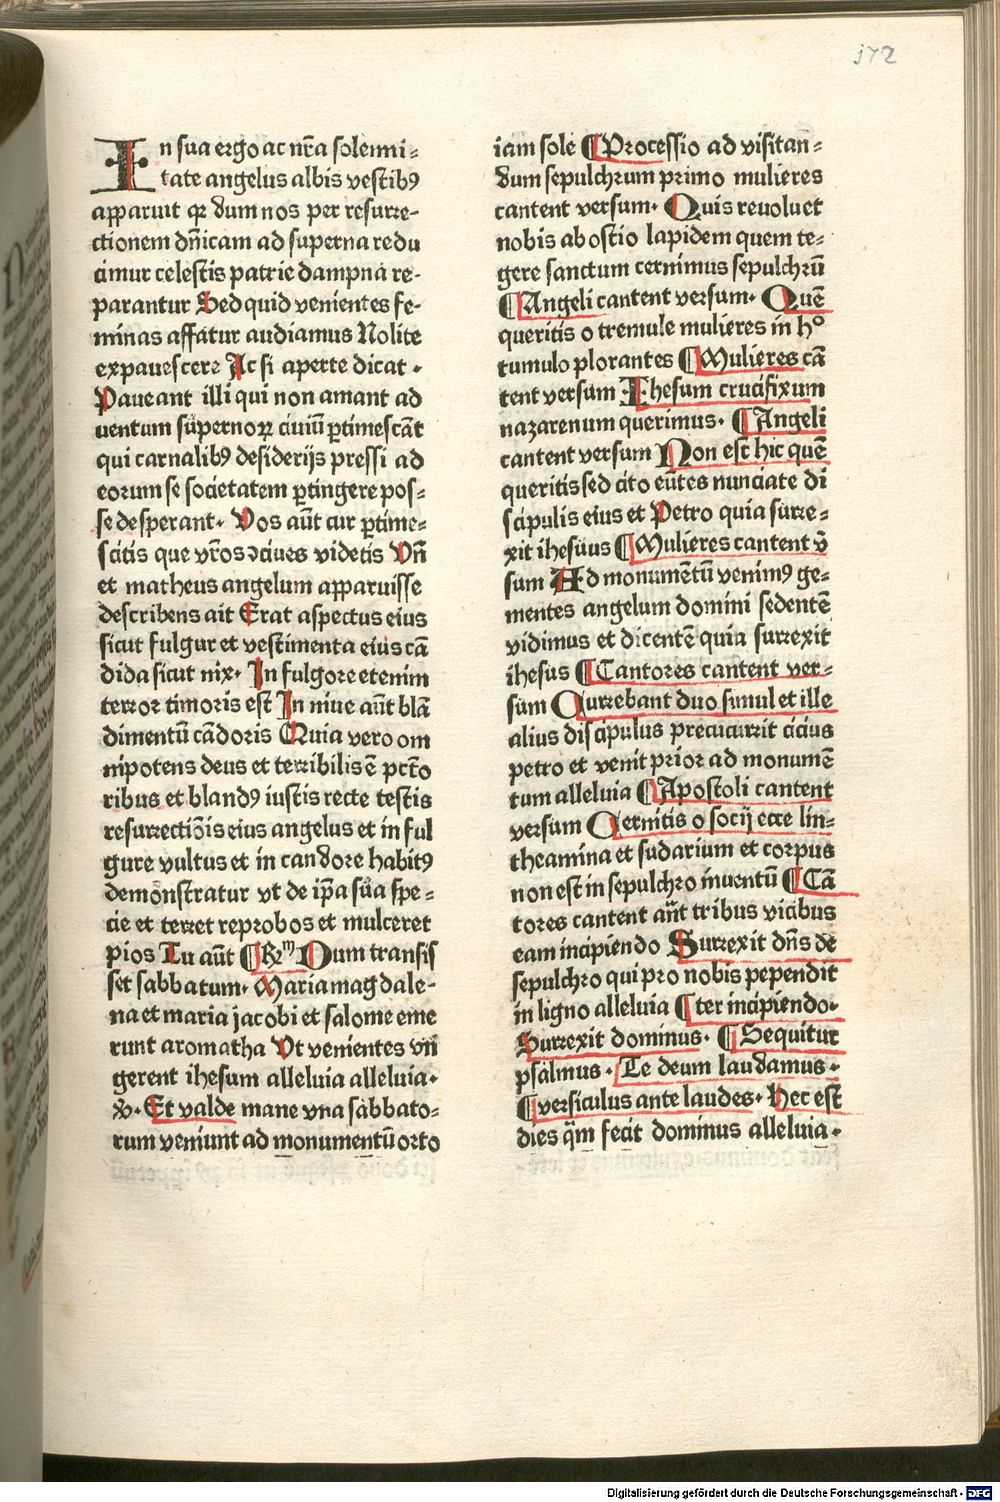 172
In sua ergo ac nr̄a solenni⸗
tate angelus albis vestibꝰ
apparuit qꝛ dum nos per resurre⸗
ctionem dn̄icam ad superna redu
cimur celestis patrie dampna re⸗
parantur Sed quid venientes fe⸗
minas affatur audiamus Nolite
expauescere Ac si aperte dicat ·
Paueant illi qui non amant ad
uentum supernoꝝ ciuiū ꝑtimescāt
qui carnalibꝰ desiderijs pressi ad
eorum se societatem ꝑtingere pos⸗
se desperant· Vos aūt cur ꝑtime⸗
scitis que vr̄os ꝯciues videtis Vn̄
et matheus angelum apparuisse
describens ait Erat aspectus eius
sicut fulgur et vestimenta eius cā
dida sicut nix· In fulgore etenim
terror timoris est In niue aūt blā
dimentū cādoris Quia vero om
nipotens deus et terribilis ē pctō
ribus et blandꝰ iustis recte testis
resurrectiōis eius angelus et in ful
gure vultus et in candore habitꝰ
demonstratur vt de ip̄a sua spe⸗
cie et terret reprobos et mulceret
pios Tu aūt ¶Rm Dum transis
set sabbatum· Maria magdale⸗
na et maria jacobi et salome eme
runt aromatha Vt venientes vn
gerent ihesum alleluia alleluia·
℣· Et valde mane vna sabbato⸗
rum veniunt ad monumentū orto
iam sole ¶Processio ad visitan⸗
dum sepulchrum primo mulieres
cantent versum· Quis reuoluet
nobis ab ostio lapidem quem te⸗
gere sanctum cernimus sepulchrū
¶Angeli cantent versum· Quē
queritis o tremule mulieres in hº
tumulo plorantes ¶Mulieres cā
tent versum Ihesum crucifixum
nazarenum querimus· ¶Angeli
cantent versum Non est hic quē
queritis sed cito eūtes nunciate di
scipulis eius et Petro quia surre⸗
xit ihesuus ¶Mulieres cantent v̄
sum Ad monumētū venimꝰ ge⸗
mentes angelum domini sedentē
vidimus et dicentē quia surrexit
ihesus ¶Cantores cantent ver⸗
sum Currebant duo simul et ille
alius discipulus precucurrit cicius
petro et venit prior ad monumē
tum alleluia ¶Apostoli cantent
versum Cernitis o socij ecce lin⸗
theamina et sudarium et corpus
non est in sepulchro inuentū ¶Cā
tores cantent an̄t tribus vicibus
eam incipiendo Surrexit dn̄s de
sepulchro qui pro nobis pependit
in ligno alleluia ¶ter incipiendo·
Surrexit dominus· ¶Sequitur
psalmus· Te deum laudamus·
¶versiculus ante laudes· Hec est
dies qm̄ fecit dominus alleluia·
Digitalisierung gefördert durch die Deutsche Forschungsgemeinschaft - DFG